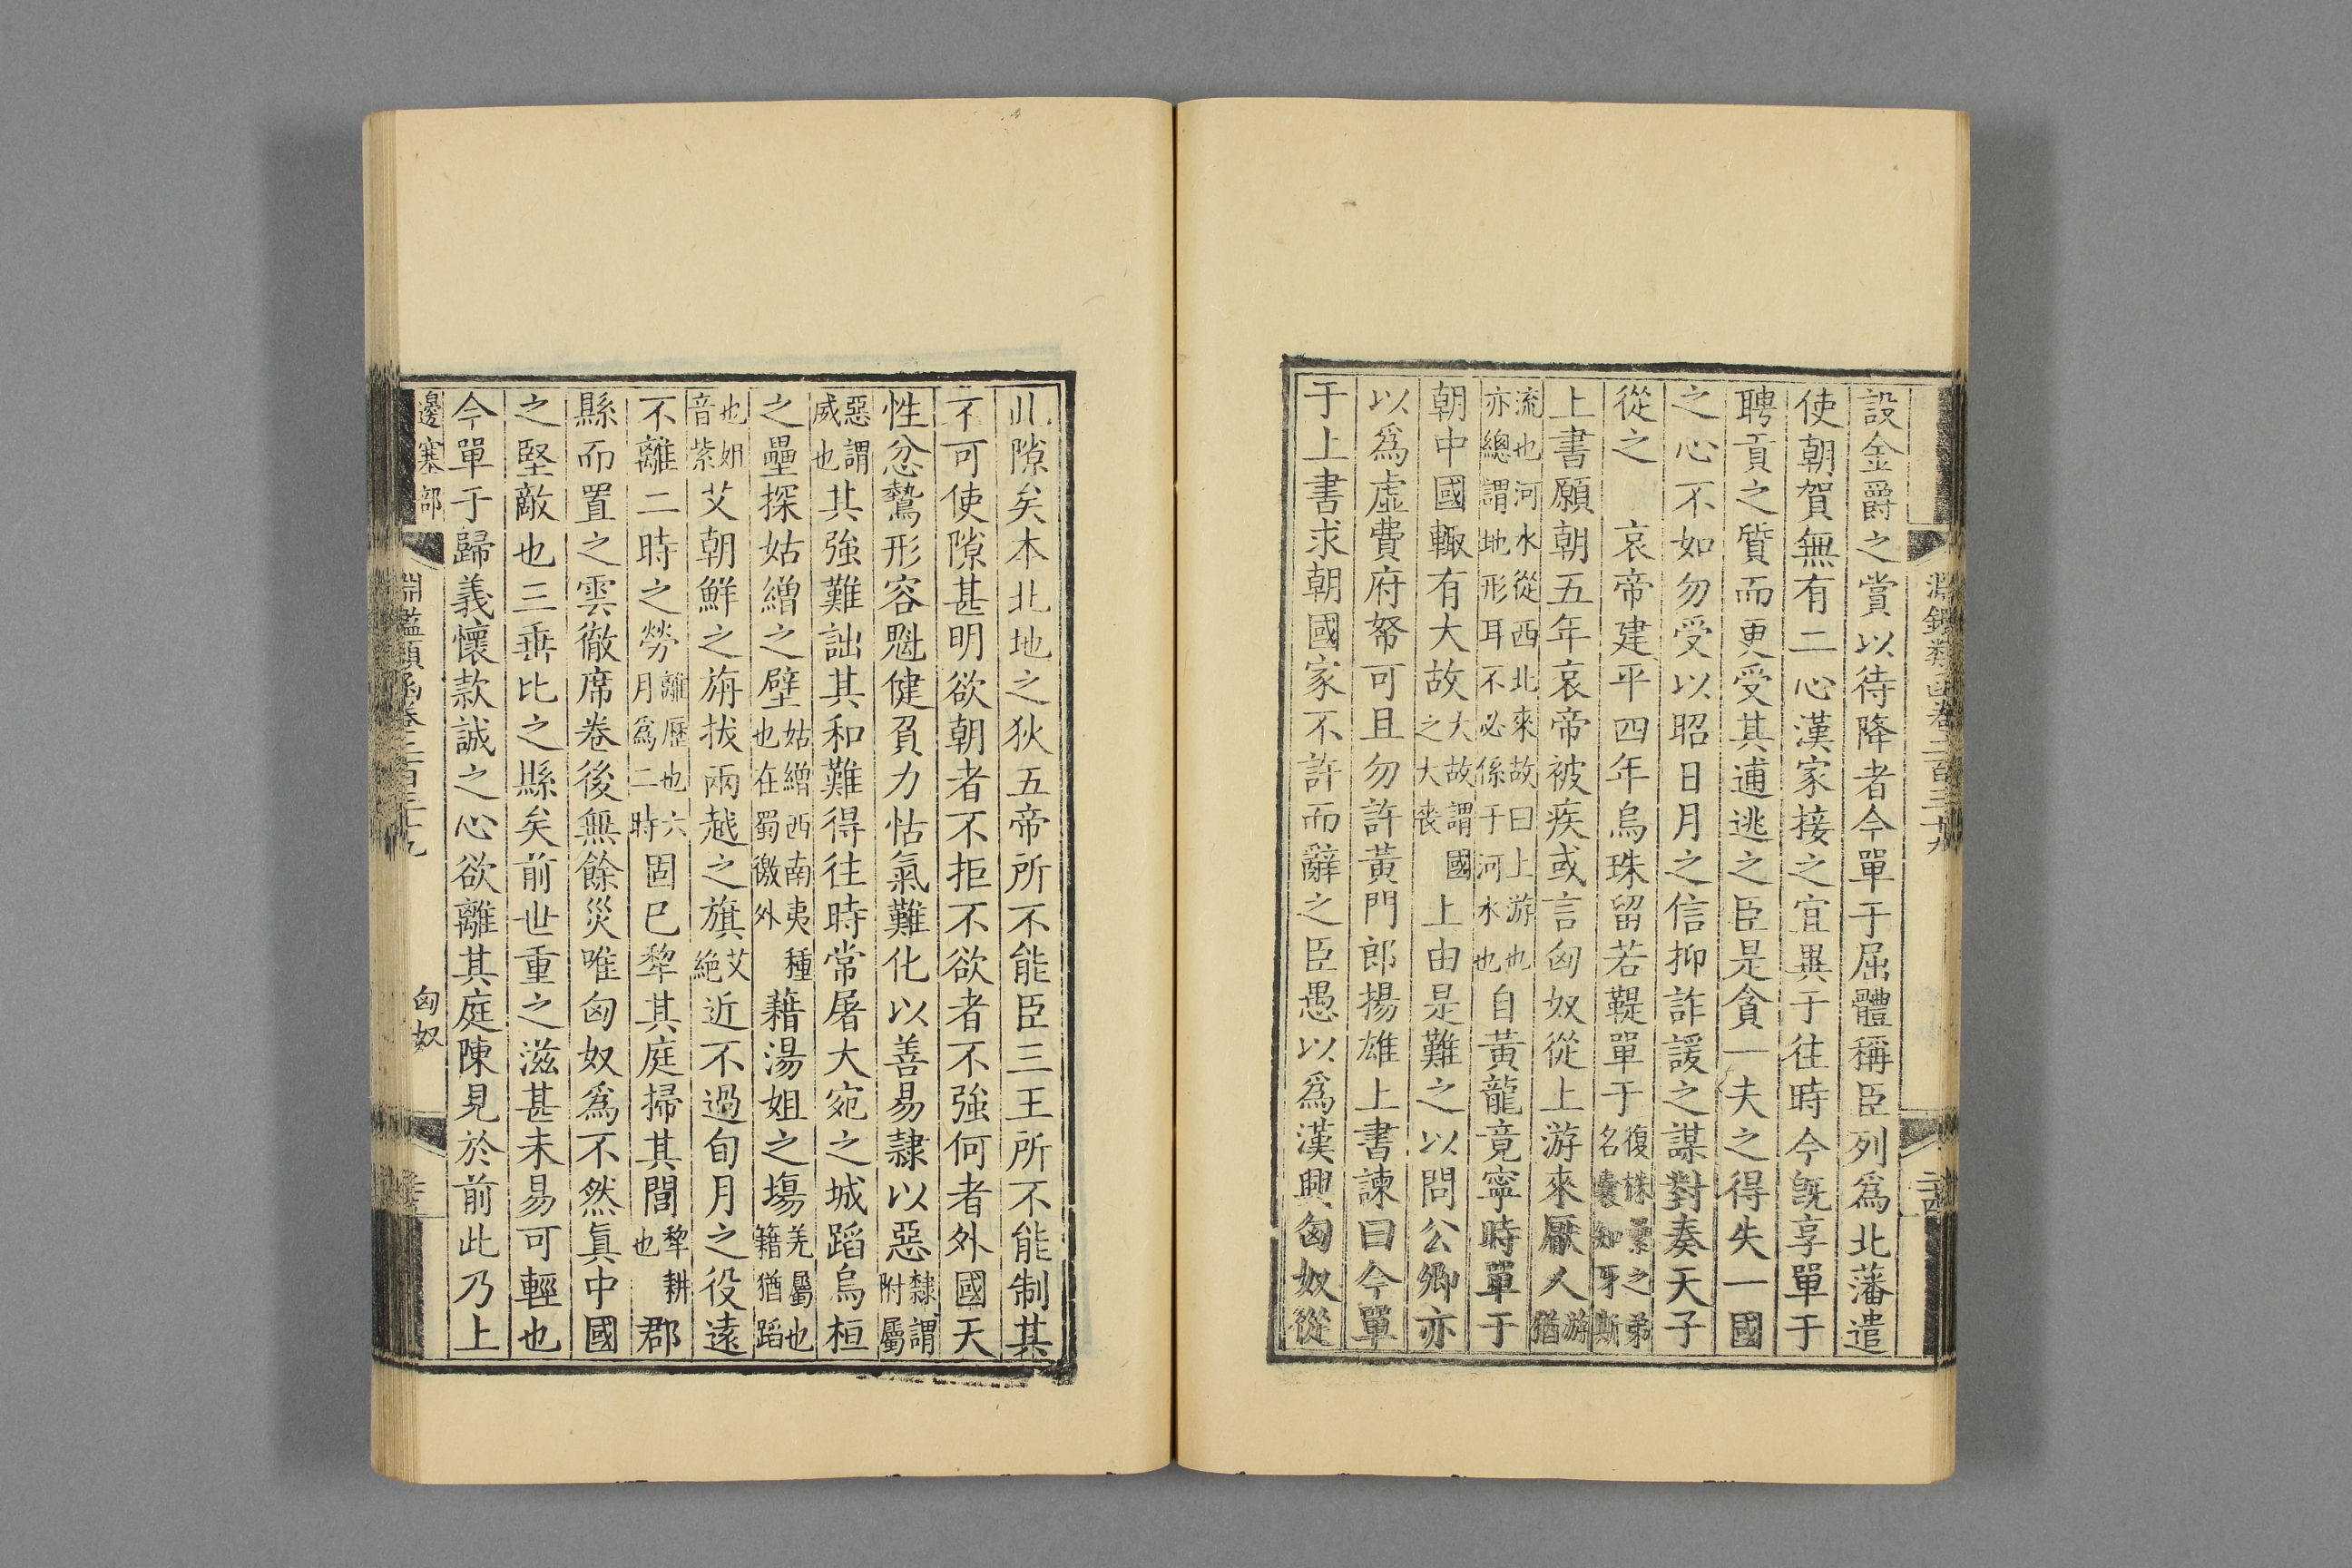 淵鑑類函卷二百三十九
設金爵之賞以待降者今單于屈體稱臣列爲北藩遣
使朝賀無有二心漢家接之宜異于往時今旣享單于
聘貢之質而更受其逋逃之臣是貪一夫之得失一國
之心不如勿受以昭日月之信抑詐諼之謀對奏天子
從之　哀帝建平四年烏珠留若鞮單于復株絫之弟名囊知牙斯
上書願朝五年哀帝被疾或言匈奴從上游來厭人游猶
流也河水從西北來故曰上游也亦總謂地形耳不必係于河水也自黃龍竟寧時單于
朝中國輙有大故大故謂國之大喪上由是難之以問公卿亦
以爲虛費府帑可且勿許黃門郎揚雄上書諫曰今單
于上書求朝國家不許而辭之臣愚以爲漢興匈奴從
此隙矣本北地之狄五帝所不能臣三王所不能制其
不可使隙甚明欲朝者不拒不欲者不強何者外國天
性忿鷙形容魁健負力怙氣難化以善易隷以惡隸謂附屬
惡謂威也其強難詘其和難得往時常屠大宛之城蹈烏桓
之壘探姑繒之壁姑繒西南夷種也在蜀徼外藉湯姐之塲羌屬也籍猶蹈
也姐音紫艾朝鮮之旃拔兩越之旗艾絕近不過旬月之役遠
不離二時之勞離歷也六月爲二時固已犂其庭掃其閭犂耕也郡
縣而置之雲徹席卷後無餘災唯匈奴爲不然眞中國
之堅敵也三垂比之縣矣前世重之滋甚未易可輕也
今單于歸義懷款誠之心欲離其庭陳見於前此乃上
邊塞部　淵鑑類函卷二百三十九　匈奴